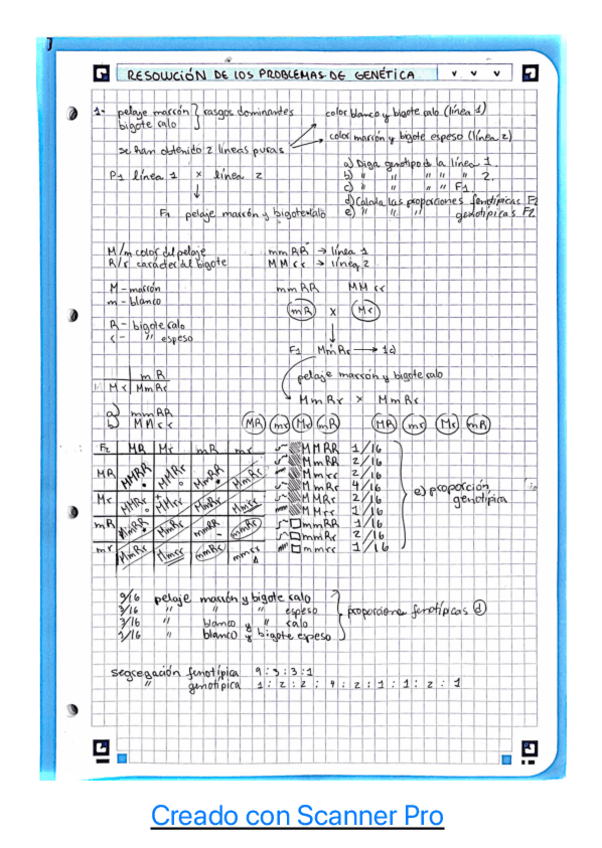 RESOLUCIÓN DE LOS PROBLEMAS DE GENÉTICA
1- pelaje marrón } rasgos dominantes
bigote ralo
color blanco y bigote ralo (línea 1)
color marrón y bigote espeso (línea 2)
se han obtenido 2 líneas puras
P1 línea 1 x línea 2
F1 pelaje marrón y bigote ralo
a) Diga genotipo de la línea 1.
b) " " " " 2.
c) " " " " F1
d) Calcula las proporciones fenotípicas F2
e) " " " genotípicas F2
M/m color del pelaje
R/r carácter del bigote
mmRR → línea 1
MMrr → línea 2
M - marrón
m - blanco
R - bigote ralo
r - " espeso
mmRR MMrr
mR x Mr
F1 MmRr → 1d
pelaje marrón y bigote ralo
MmRr x MmRr
MR mr Mr mR MR mr Mr mR
mR
Mr MmRr
a) mmRR
b) MMrr
F2 MR Mr mR mr
MR MMRR MMRr MmRR MmRr
Mr MMRr MMrr MmRr Mmrr
mR MmRR MmRr mmRR mmRr
mr MmRr Mmrr mmRr mmrr
MMRR 1/16
MmRR 2/16
Mmrr 2/16
MmRr 4/16
MMRr 2/16
MMrr 1/16
mmRR 1/16
mmRr 2/16
mmrr 1/16
e) proporción genotípica
9/16 pelaje marrón y bigote ralo
3/16 " " " espeso
3/16 " blanco y " ralo
1/16 " blanco y bigote espeso
proporciones fenotípicas d
segregación fenotípica 9:3:3:1
" genotípica 1:2:2:4:2:1:1:2:1
Creado con Scanner Pro